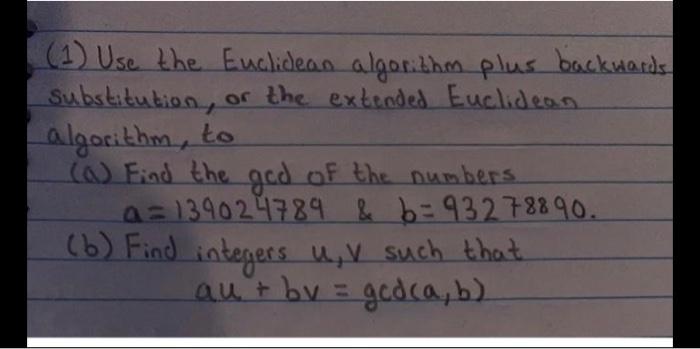 (1) Use the Euclidean algorithm plus backwards
substitution, or the extended Euclidean
algorithm, to
(a) Find the gcd of the numbers
a=139024789 & b=93278890.
(b) Find integers u,v such that
au + bv = gcd(a,b)